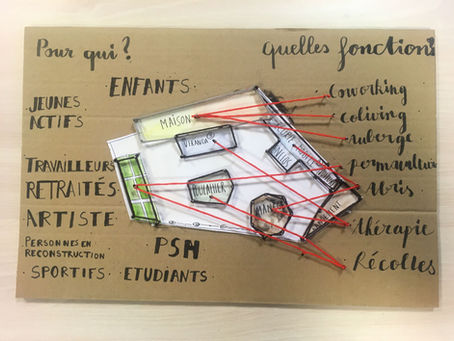 Pour qui ?
Quelles fonctions
ENFANTS
JEUNES
ACTIFS
TRAVAILLEURS
RETRAITÉS
ARTISTE
PERSONNES EN
RECONSTRUCTION
SPORTIFS
ETUDIANTS
PSH
MAISON
POULAILLER
Coworking
Coliving
Auberge
Permaculture
Abris
Thérapie
Récoltes